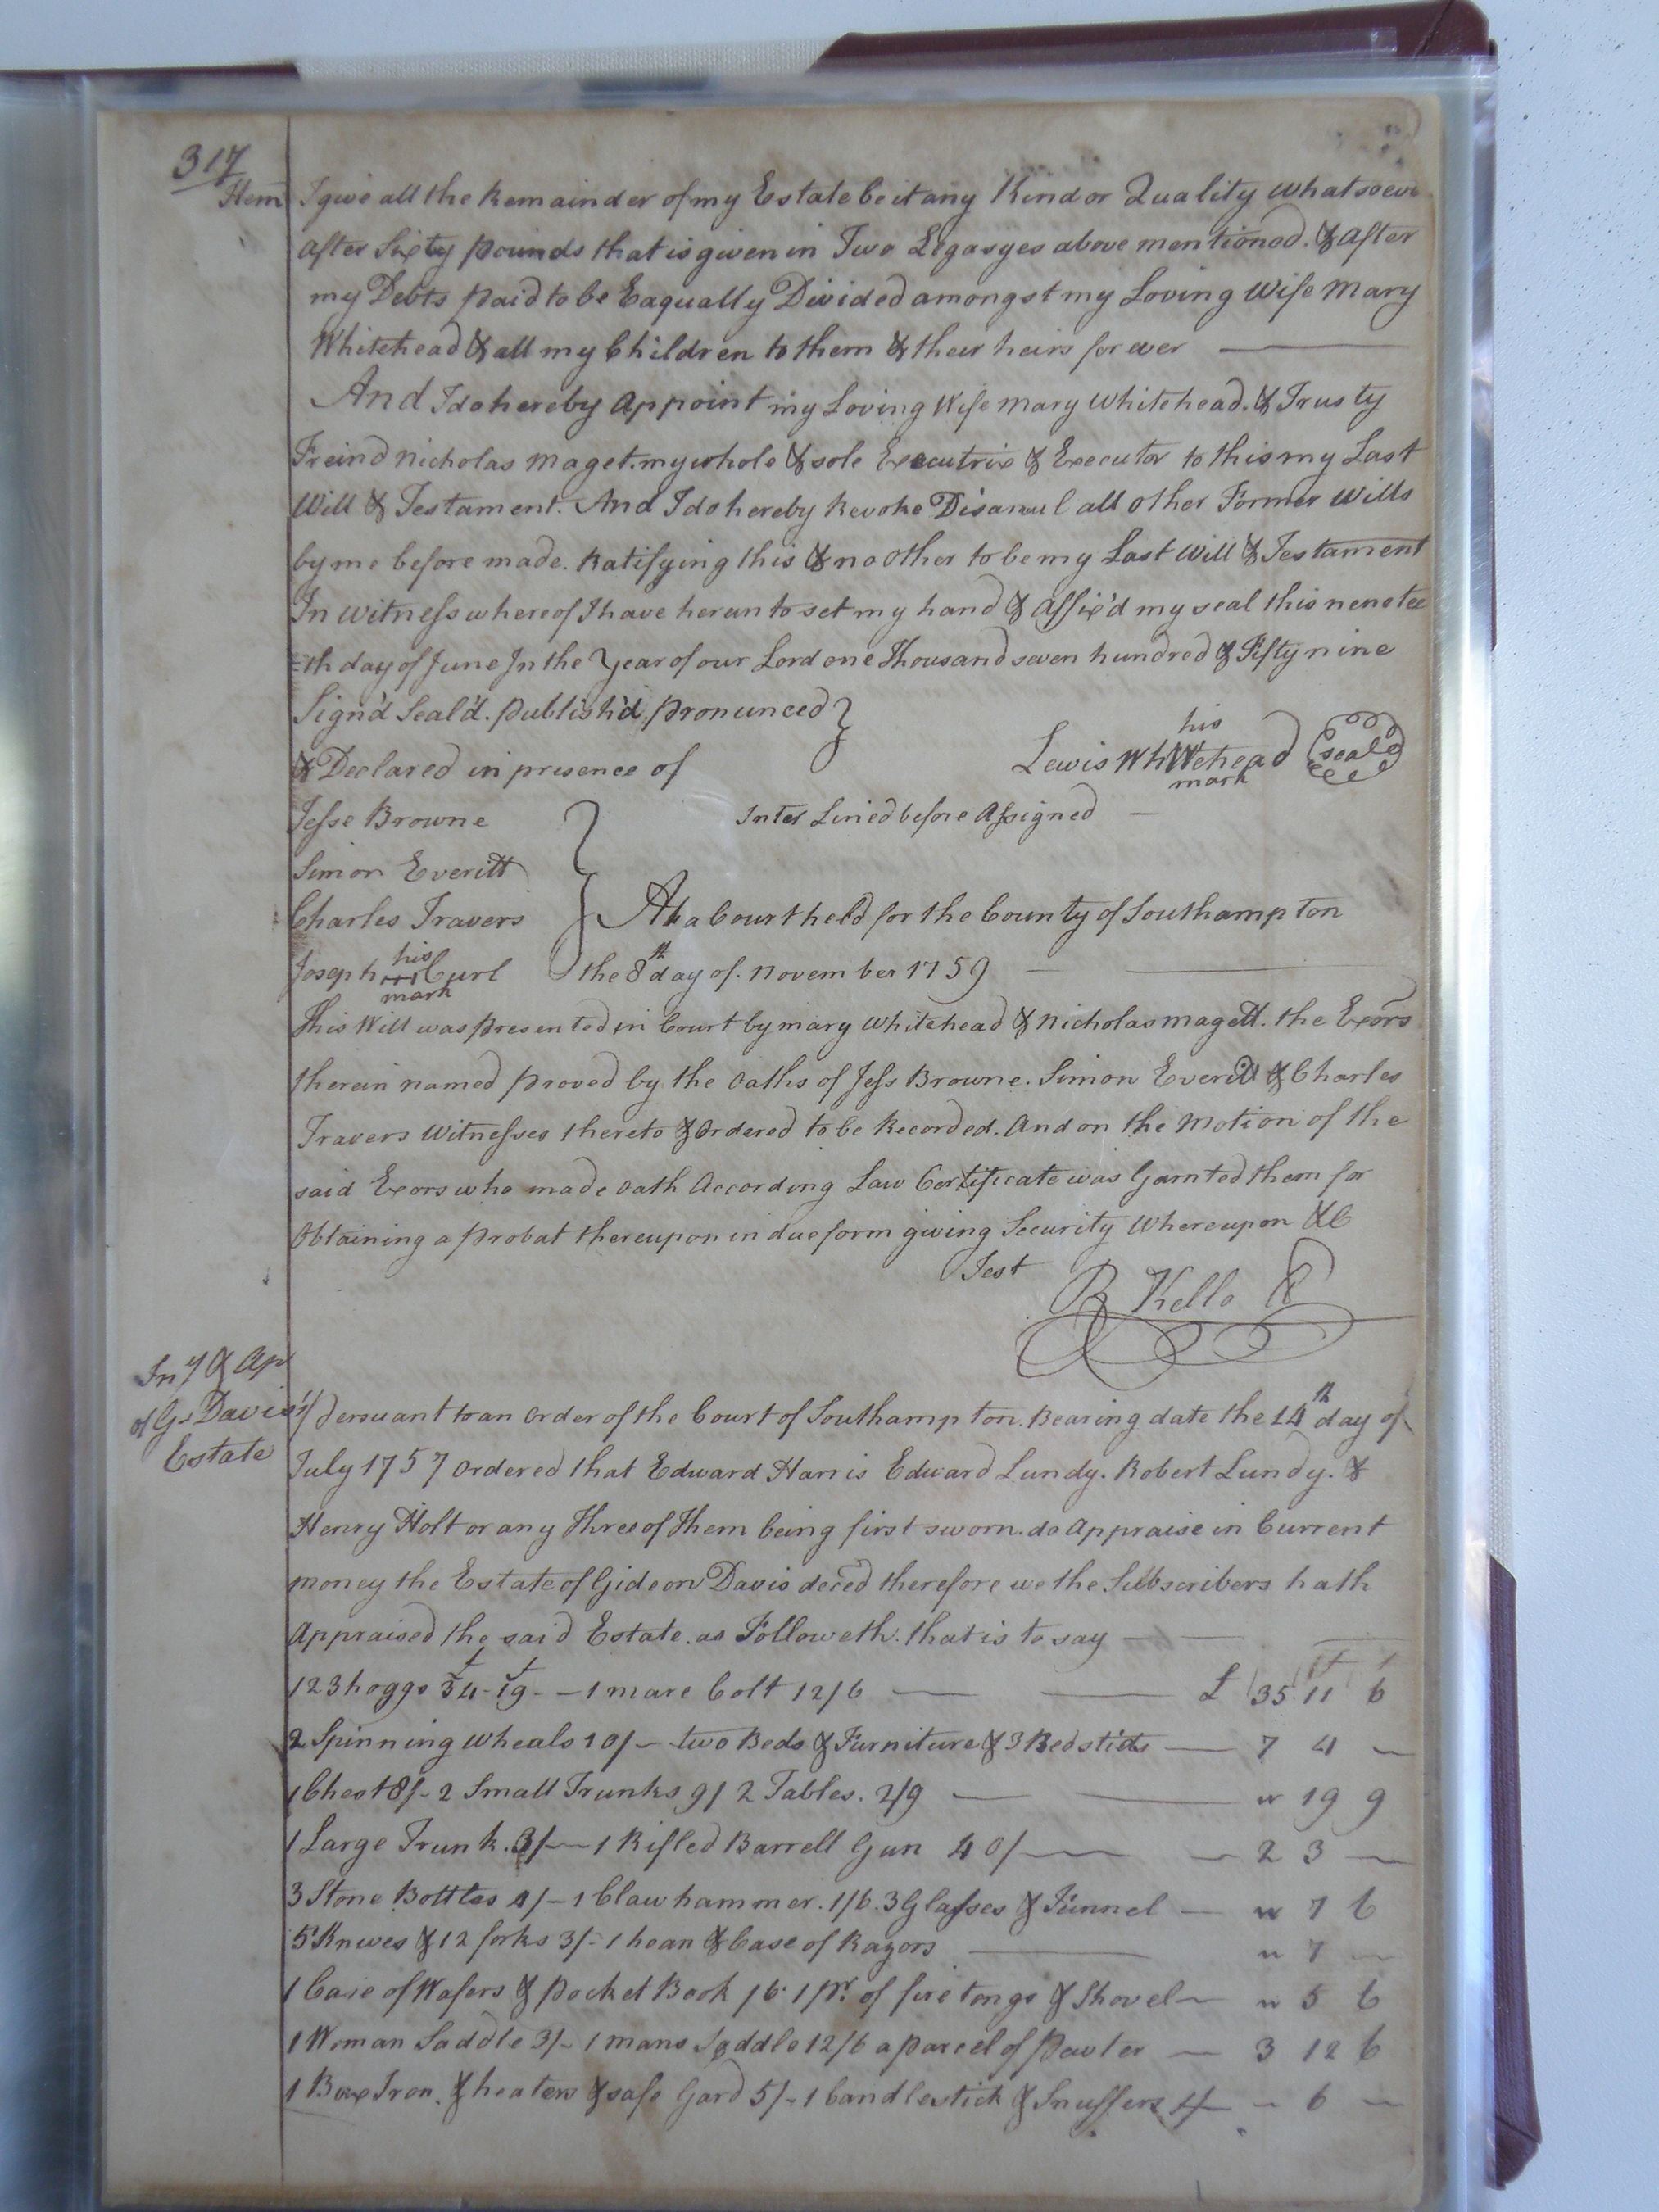 317
Item I give all the Remainder of my Estate be it any Kind or Quality whatsoever
after Sixty pounds that is given in Two Legasyes above mentioned. & after
my Debts paid to be Eaqually Divided amongst my Loving Wife Mary
Whitehead & all my Children to them & their heirs for ever
And I do hereby appoint my Loving Wife Mary Whitehead. & Trusty
Freind Nicholas Maget. my whole & sole Executrix & Executor to this my Last
Will & Testament. And I do hereby Revoke Disanul all other Former Wills
by me before made. Ratifying this & no other to be my Last Will & Testament
In Witness whereof I have herunto set my hand & affix'd my seal this nenetee
=th day of June In the Year of our Lord one Thousand seven hundred & Fifty nine
Sign'd Seal'd. publish'd. pronunced
& Declared in presence of
his
Lewis Whitehead seal
mark
Jesse Browne
Inter Lined before Assigned
Simon Everitt
Charles Travers
At a Court held for the County of Southampton
his
Joseph +++ Curl
mark
the 8th day of. November 1759
This Will was presented in Court by Mary Whitehead & Nicholas Magett. the Exors
therein named proved by the oaths of Jess Browne. Simon Everitt & Charles
Travers Witnesses thereto & Ordered to be Recorded. And on the Motion of the
said Exors who made oath According Law Certificate was Garnted them for
Obtaining a Probat thereupon in due form giving Security Whereupon &C
Test
R Kello
Inv & Ap
of Gs Davis's
Estate
Persuant to an Order of the Court of Southampton. Bearing date the 14th day of
July 1757 Ordered that Edward Harris Edward Lundy. Robert Lundy. &
Henry Holt or any Three of Them being first sworn. do Appraise in Current
money the Estate of Gideon Davis deced therefore we the Subscribers hath
Appraised the said Estate. as Followeth. that is to say
123 hoggs 34-19- - 1 mare Colt 12/6 £ 35 11 6
2 Spinning Wheals 10/- two Beds & Furniture & 3 Bedstids 7 4 -
1 Chest 8/- 2 Small Trunks 9/ 2 Tables. 2/9 " 19 9
1 Large Trunk. 3/- 1 Rifled Barrell Gun 40/ 2 3 -
3 Stone Bottles 4/- 1 Claw hammer. 1/6. 3 Glasses & Funnel " 7 6
5 Knives & 12 forks 3/- 1 hoan & Case of Razors " 7 -
1 Case of Wafers & Pocket Book /6. 1 pr. of fire tongs & Shovel " 5 6
1 Woman Saddle 3/- 1 mans Saddle 12/6 a parcel of Pewter 3 12 6
1 Box Iron. & heaters & safe Gard 5/- 1 Candlestick & Snuffers - 6 -